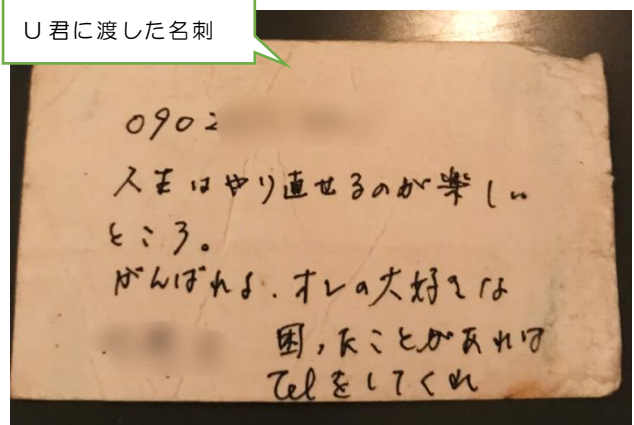 U君に渡した名刺
0902
人生はやり直せるのが楽しい
ところ。
がんばれよ.オレの大好きな
困ったことがあれば
Telをしてくれ